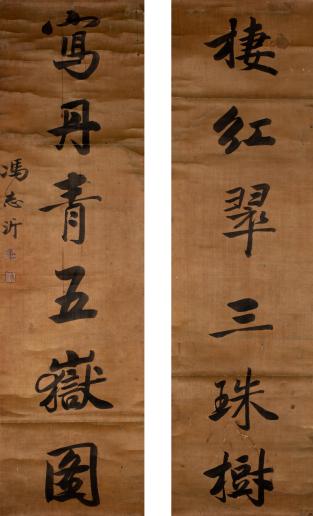 棲紅翠三珠樹
寫丹青五嶽圖
馮志沂